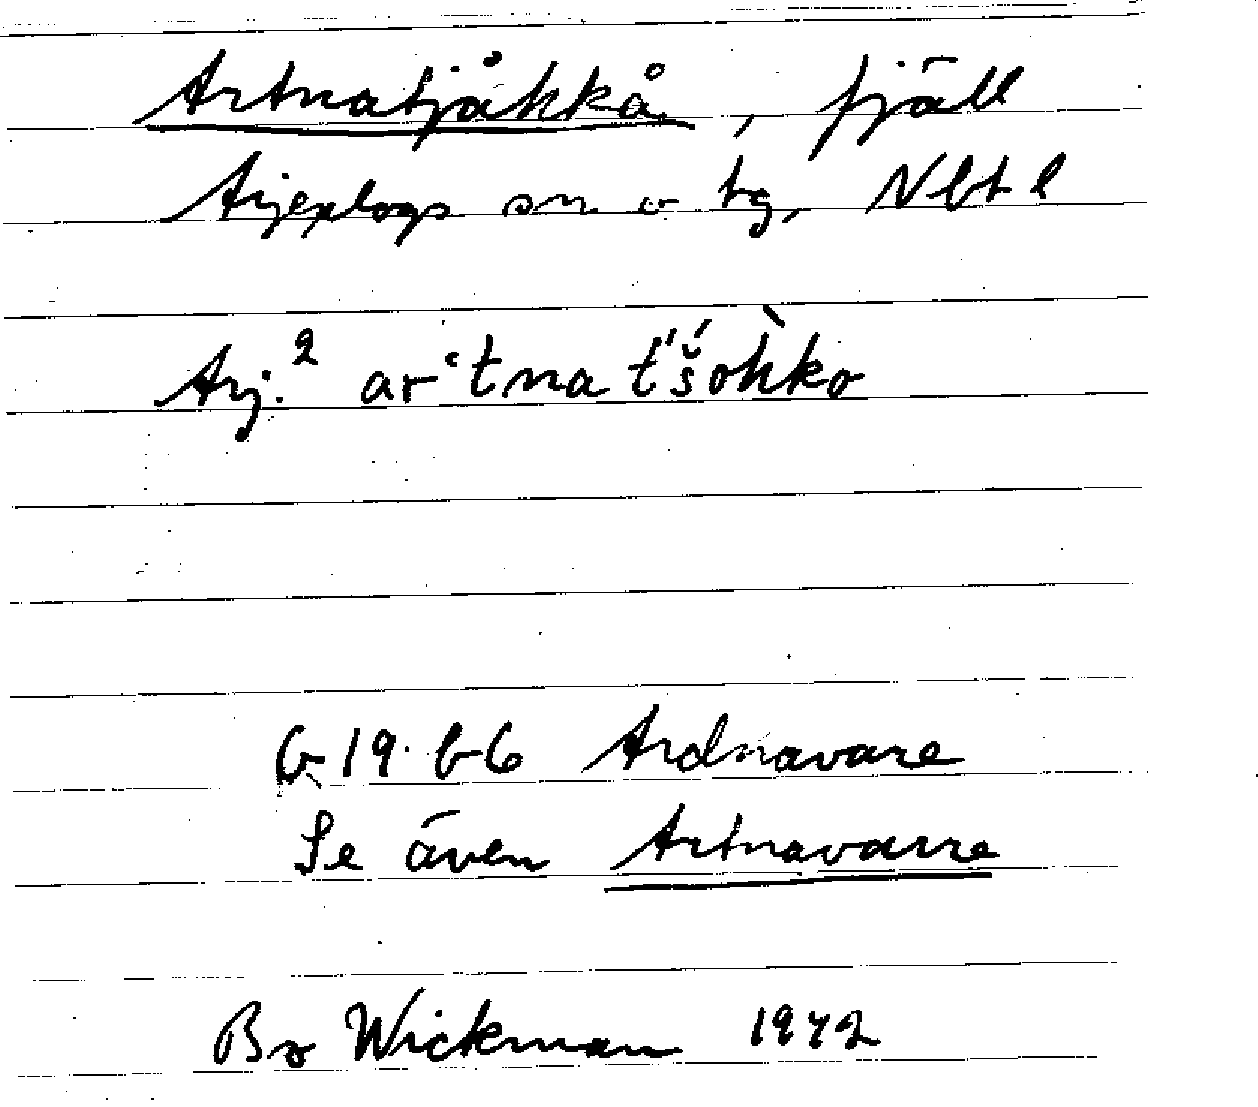 Artnatjåkkå, fjäll
Arjeplogs sn o tg, Nbt l
Arj.² ar ͑tna t́'š́oh̀ko
G 19 b6 Ardnavare
Se även Artnavarre
Bo Wickman 1942